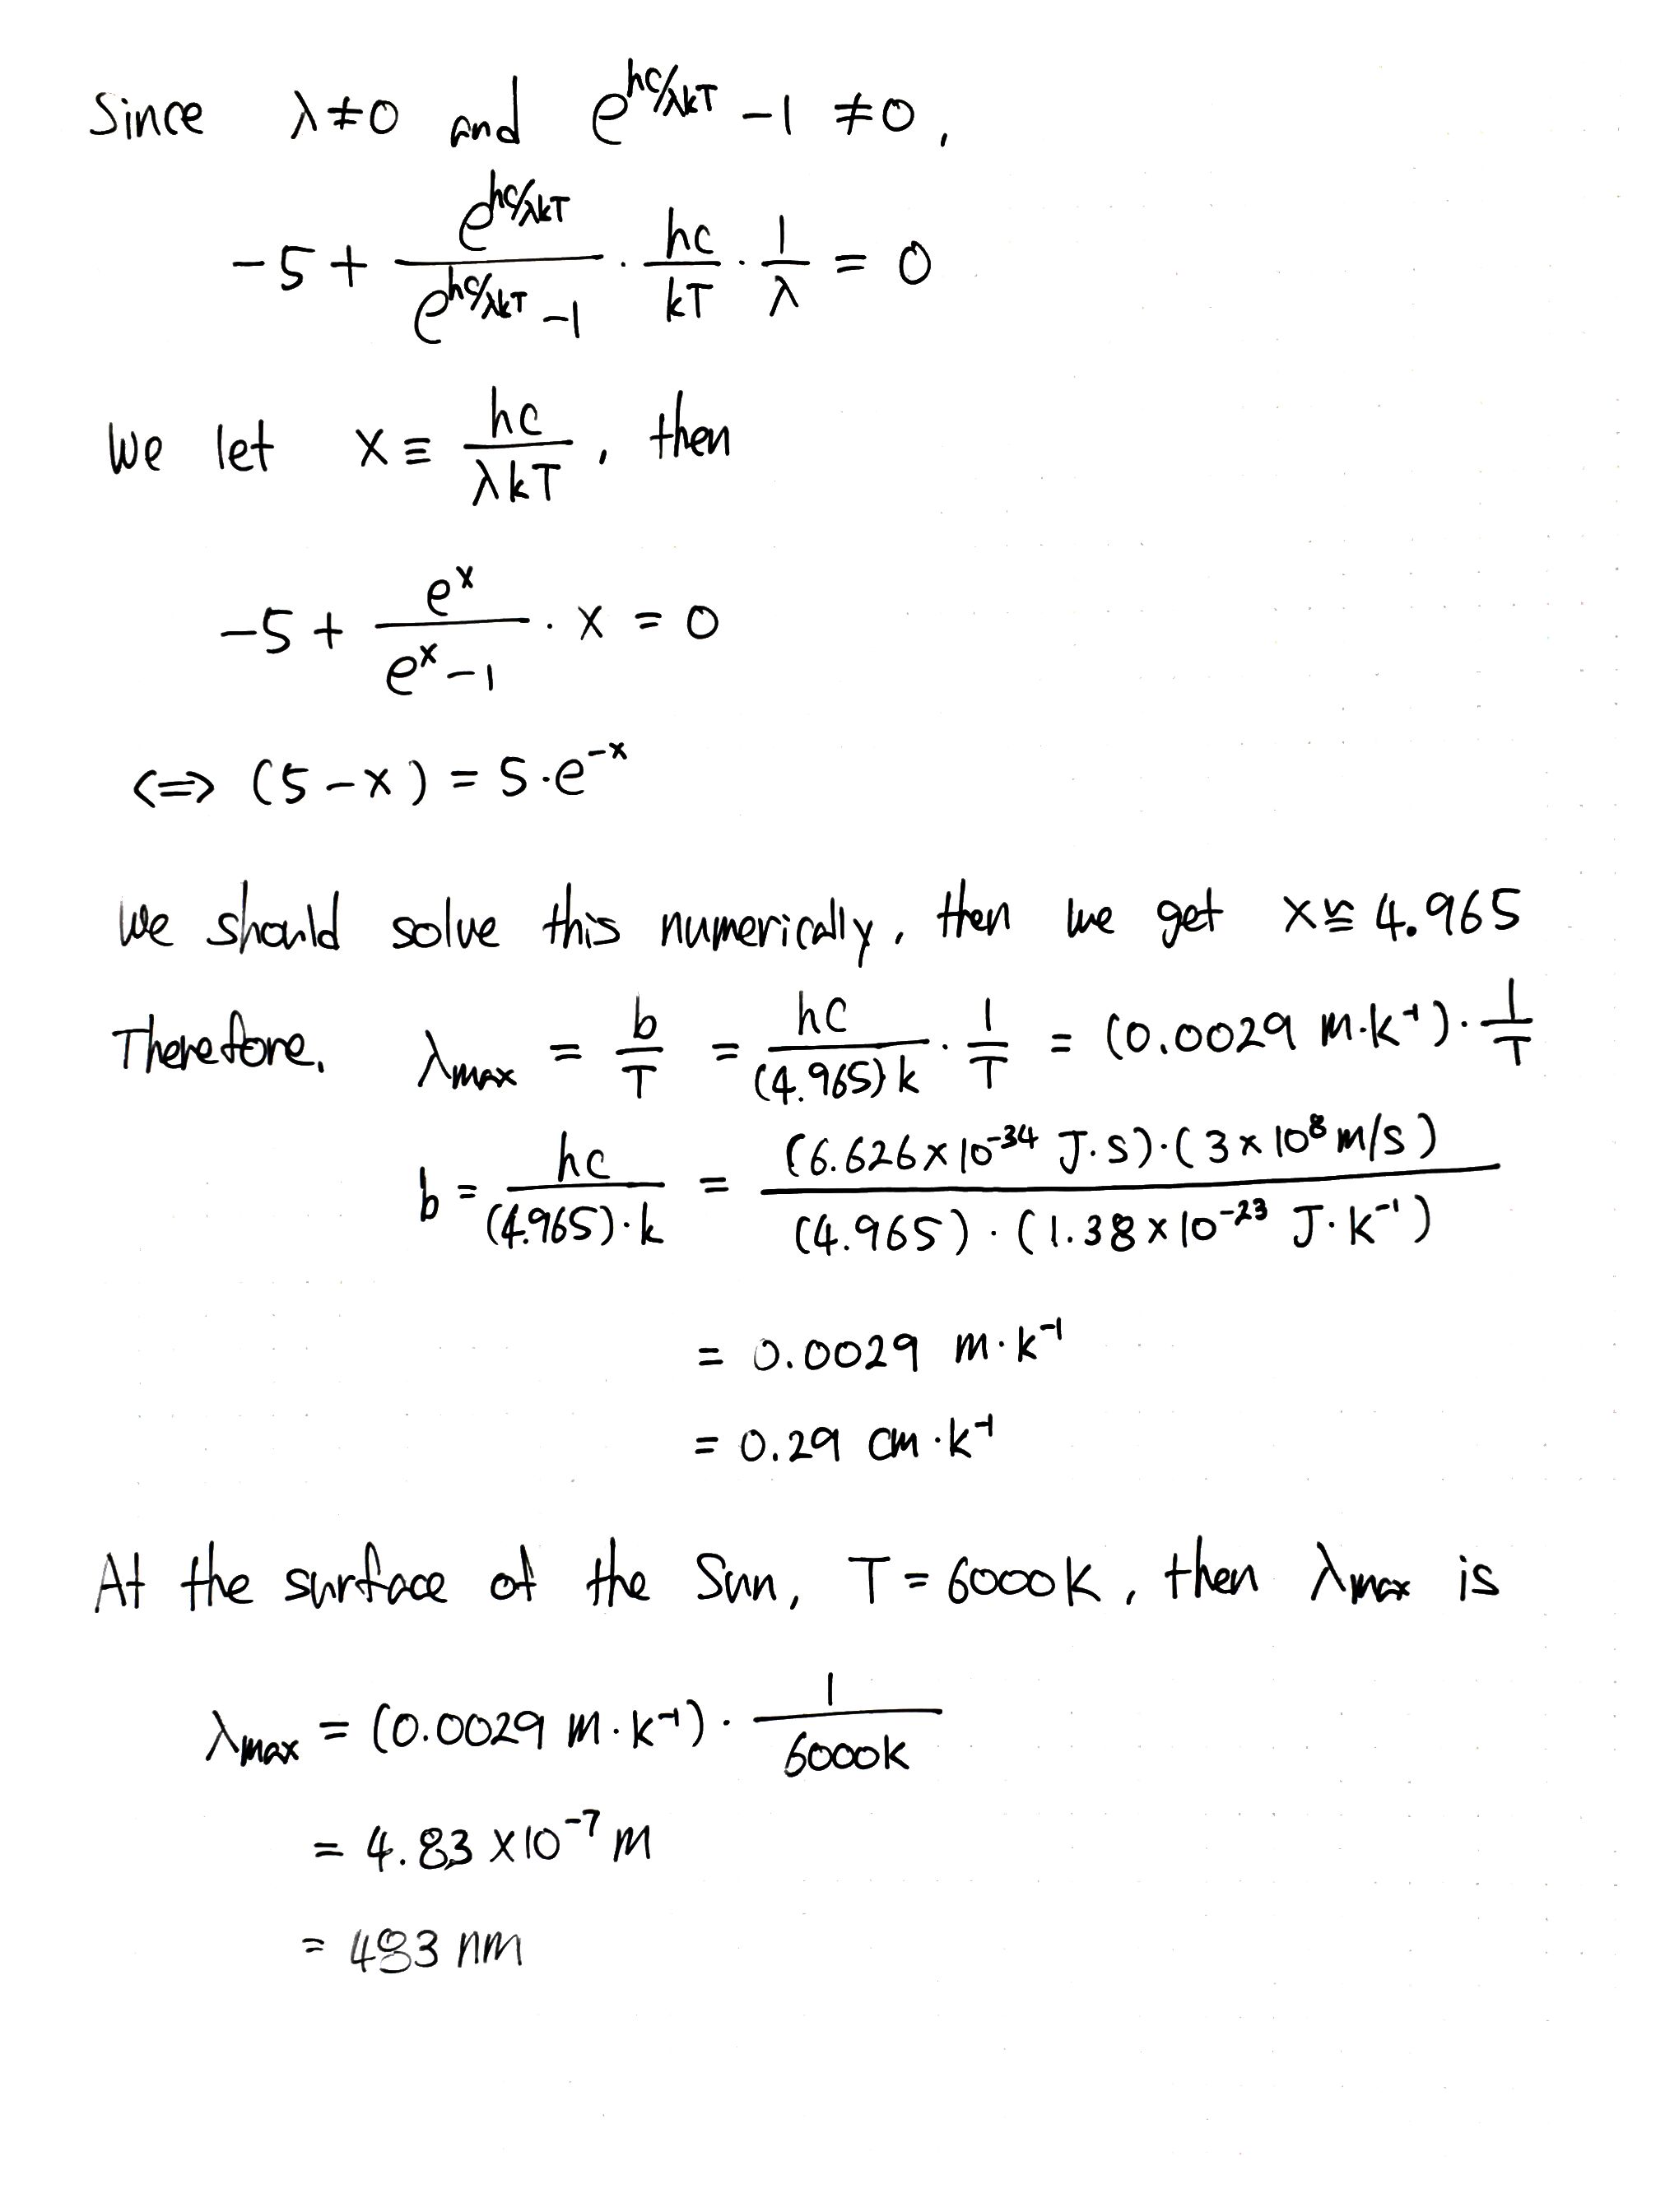 Since λ≠0 and e^{hc/λkT} -1 ≠0,
-5 + \frac{e^{hc/λkT}}{e^{hc/λkT} -1} · \frac{hc}{kT} · \frac{1}{λ} = 0
We let x ≡ \frac{hc}{λkT}, then
-5 + \frac{e^x}{e^x -1} · x = 0
<=> (5-x) = 5·e^{-x}
We should solve this numerically, then we get x ≅ 4.965
Therefore, λ_{max} = \frac{b}{T} = \frac{hc}{(4.965)k} · \frac{1}{T} = (0.0029 m·k^{-1}) · \frac{1}{T}
b = \frac{hc}{(4.965)·k} = \frac{(6.626×10^{-34} J·s)·(3×10^8 m/s)}{(4.965)·(1.38×10^{-23} J·K^{-1})}
= 0.0029 m·k^{-1}
= 0.29 cm·k^{-1}
At the surface of the Sun, T = 6000K, then λ_{max} is
λ_{max} = (0.0029 m·k^{-1}) · \frac{1}{6000k}
= 4.83 ×10^{-7} m
= 483 nm